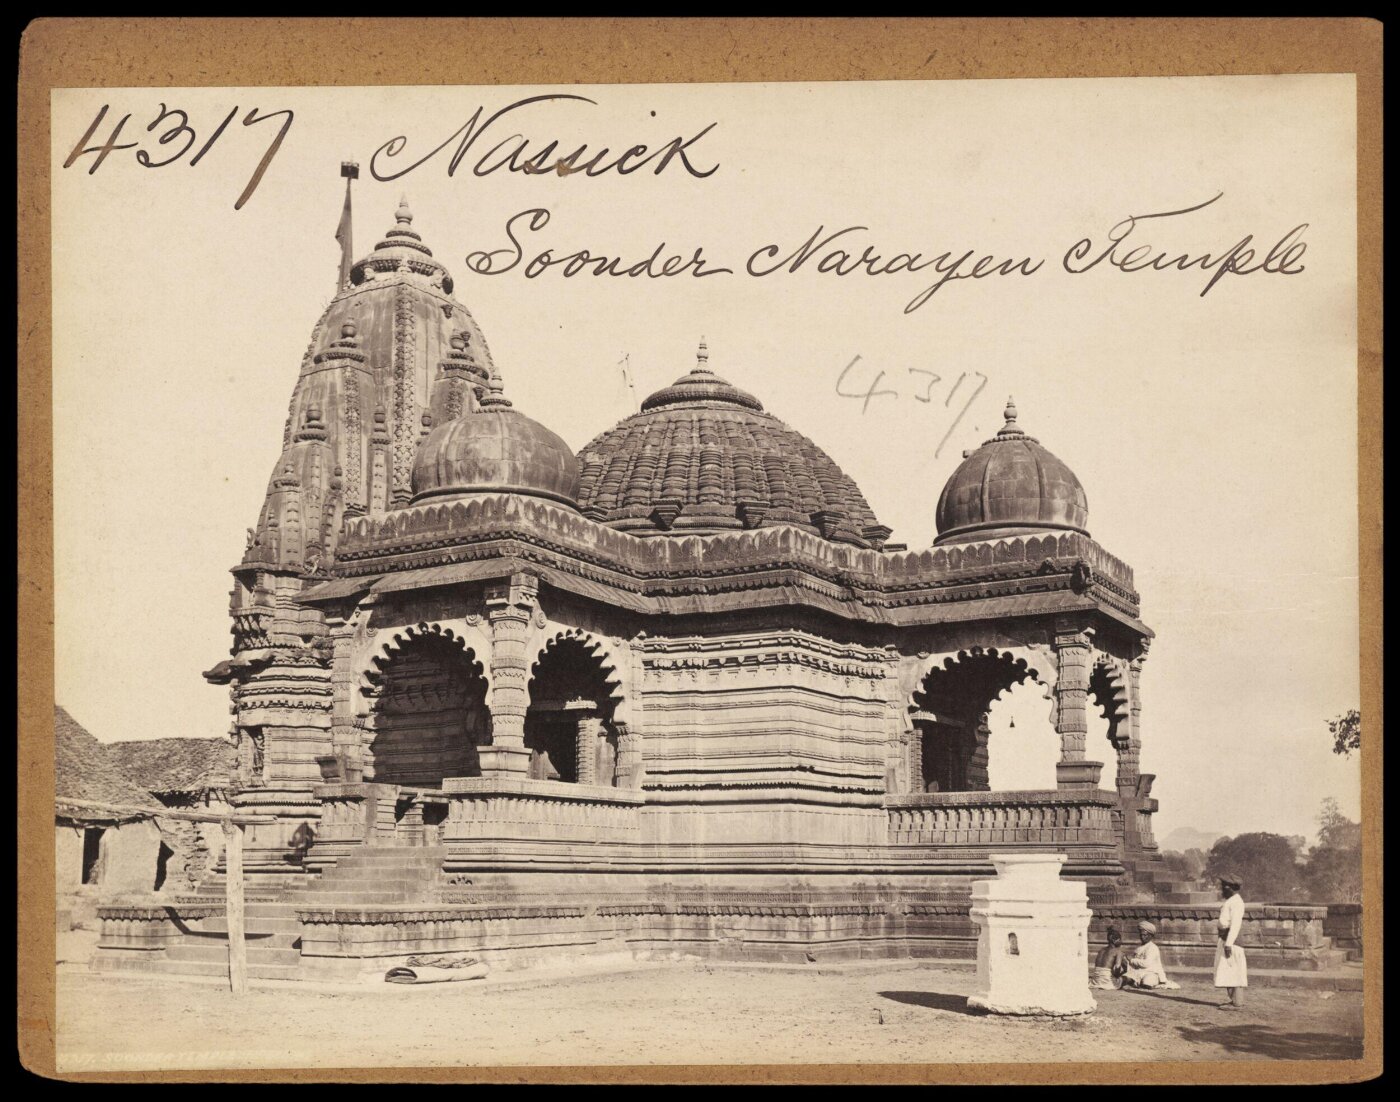 4317 Nassick
Soonder Narayen Temple
4317.
4317. SOONDER TEMPLE